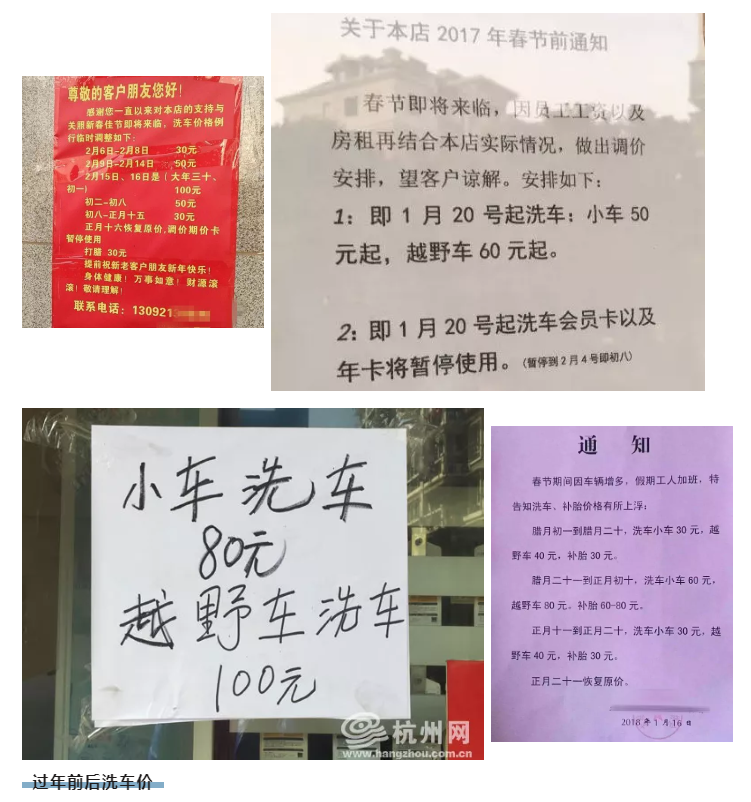 尊敬的客户朋友您好！
感谢您一直以来对本店的支持与
关照新春佳节即将来临、洗车价格例
行临时调整如下：
2月6日-2月8日 30元
2月9日-2月14日 50元
2月15日、16日是（大年三十、
初一） 100元
初二-初八 50元
初八-正月十五 30元
正月十六恢复原价,调价期价卡
暂停使用
打腊 30元
提前祝新老客户朋友新年快乐！
身体健康！万事如意！财源滚
滚！敬请理解！
联系电话：130921
关于本店 2017 年春节前通知
春节即将来临，因员工工资以及
房租再结合本店实际情况，做出调价
安排，望客户谅解。安排如下：
1：即 1 月 20 号起洗车：小车 50
元起，越野车 60 元起。
2：即 1 月 20 号起洗车会员卡以及
年卡将暂停使用。（暂停到 2 月 4 号即初八）
小车洗车
80元
越野车洗车
100元
杭州网
www.hangzhou.com.cn
通 知
春节期间因车辆增多，假期工人加班，特
告知洗车、补胎价格有所上浮：
腊月初一到腊月二十，洗车小车 30 元，越
野车 40 元，补胎 30 元。
腊月二十一到正月初十，洗车小车 60 元，
越野车 80 元。补胎 60-80 元。
正月十一到正月二十，洗车小车 30 元，越
野车 40 元，补胎 30 元。
正月二十一恢复原价。
2018 年 1 月 16 日
过年前后洗车价